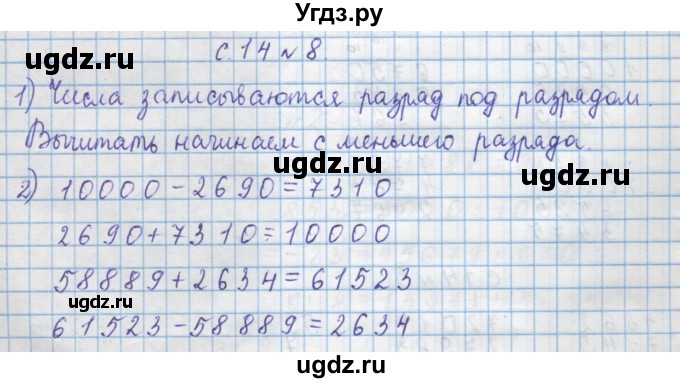 Угдз.ру
с. 14 № 8.
1) Числа записываются разряд под разрядом.
Вычитать начинаем с меньшего разряда.
2) 10000 - 2690 = 7310
2690 + 7310 = 10000
58889 + 2634 = 61523
61523 - 58889 = 2634
ugdz.ru
ugdz.ru
ugdz.ru
ugdz.ru
ugdz.ru
ugdz.ru
ugdz.ru
ugdz.ru
ugdz.ru